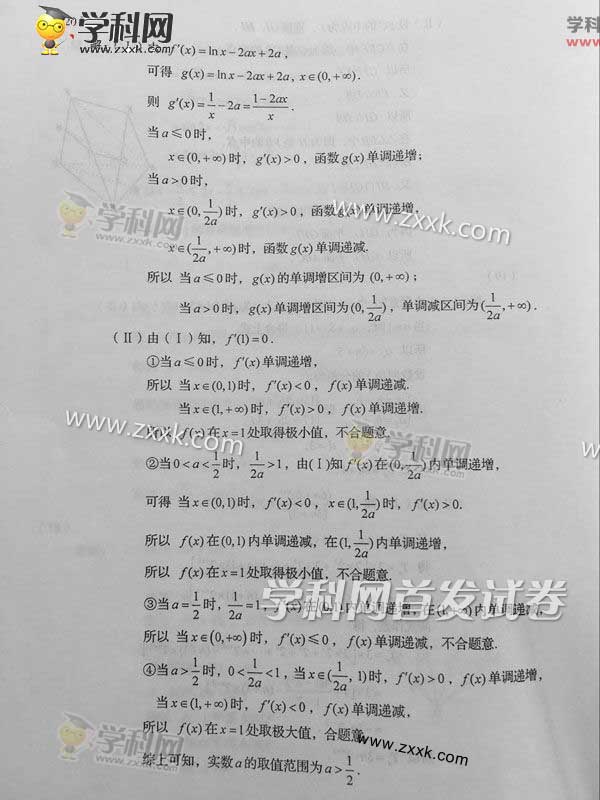 学科网
zxxk.com
WWW.ZX
学科
由 f′(x)=ln x−2ax+2a，
可得 g(x)=ln x−2ax+2a, x∈(0,+∞).
则 g′(x)=1/x−2a=(1−2ax)/x.
当a≤0时，
x∈(0,+∞)时，g′(x)>0，函数g(x)单调递增；
当a>0时，
x∈(0,1/2a)时，g′(x)>0，函数g(x)单调递增，
学科网
zxxk.com
www.zxxk.com
x∈(1/2a,+∞)时，函数g(x)单调递减.
所以 当a≤0时，g(x)的单调增区间为(0,+∞)；
当a>0时，g(x)单调增区间为(0,1/2a)，单调减区间为(1/2a,+∞).
(Ⅱ)由(Ⅰ)知，f′(1)=0.
①当a≤0时，f′(x)单调递增，
所以 当x∈(0,1)时，f′(x)<0，f(x)单调递减.
当x∈(1,+∞)时，f′(x)>0，f(x)单调递增.
www.zxxk.com
学科网
所以 f(x)在x=1处取得极小值，不合题意.
②当0<a<1/2时，1/2a>1，由(Ⅰ)知f′(x)在(0,1/2a)内单调递增，
可得 当x∈(0,1)时，f′(x)<0，x∈(1,1/2a)时，f′(x)>0.
所以 f(x)在(0,1)内单调递减，在(1,1/2a)内单调递增，
所以 f(x)在x=1处取得极小值，不合题意.
学科网首发试卷
③当a=1/2时，1/2a=1，f′(x)在(0,1)内单调递增，在(1,+∞)内单调递减，
所以 当x∈(0,+∞)时，f′(x)≤0，f(x)单调递减，不合题意.
④当a>1/2时，0<1/2a<1，当x∈(1/2a,1)时，f′(x)>0，f(x)单调递增，
当x∈(1,+∞)时，f′(x)<0，f(x)单调递减，
所以 f(x)在x=1处取极大值，合题意.
学科网
zxxk.com
www.zxxk.com
综上可知，实数a的取值范围为a>1/2.